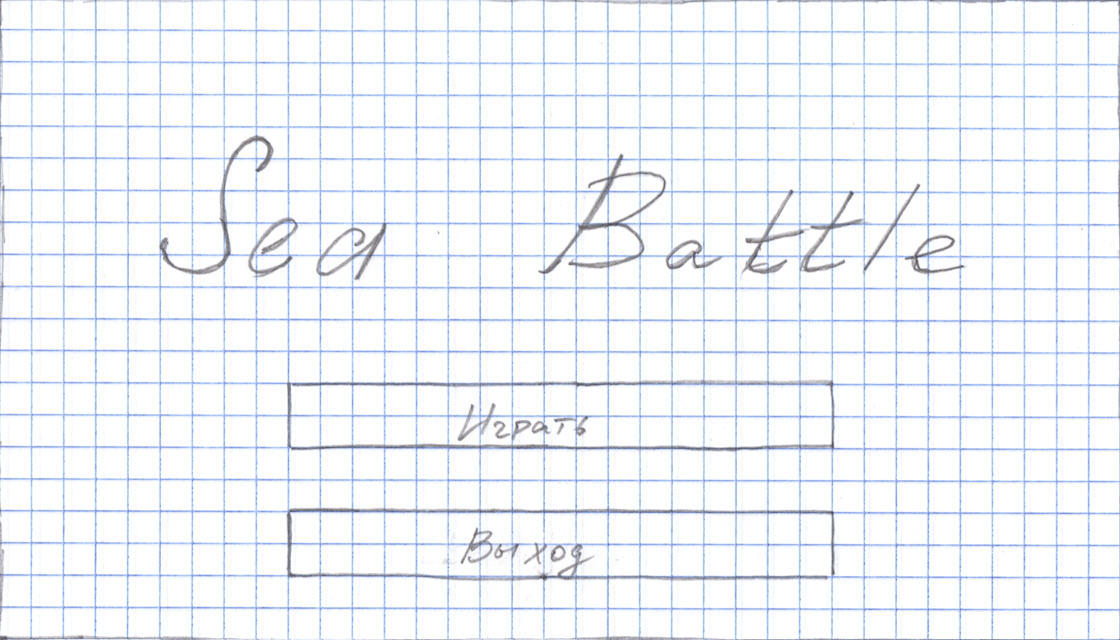 Sea Battle
Играть
Выход